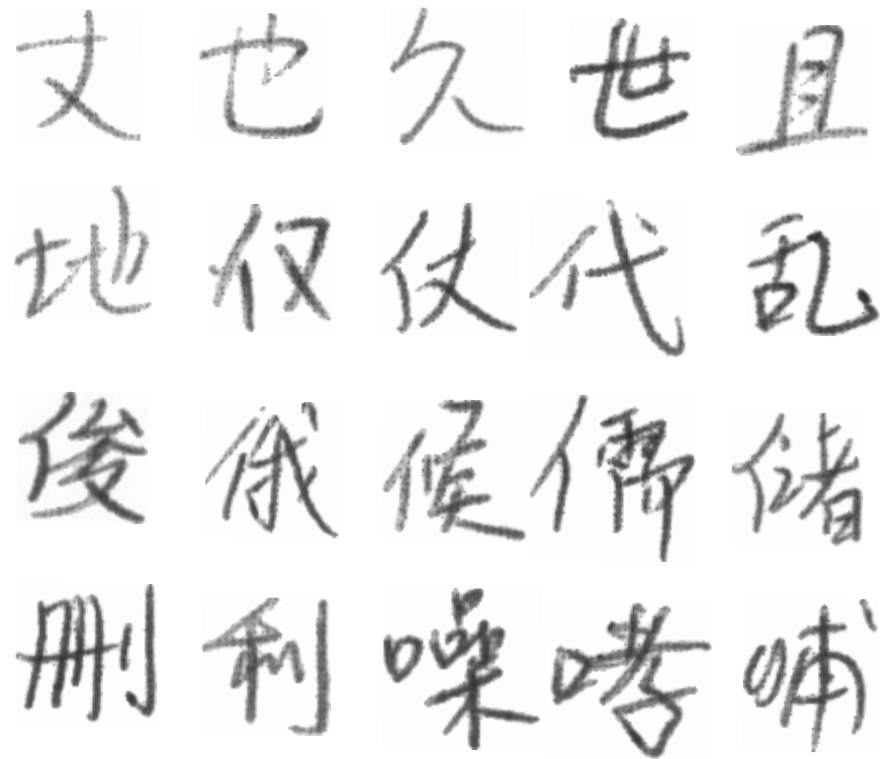 丈也久世且
地仅仗代乱
俊俄候儒储
删利噪哮哺